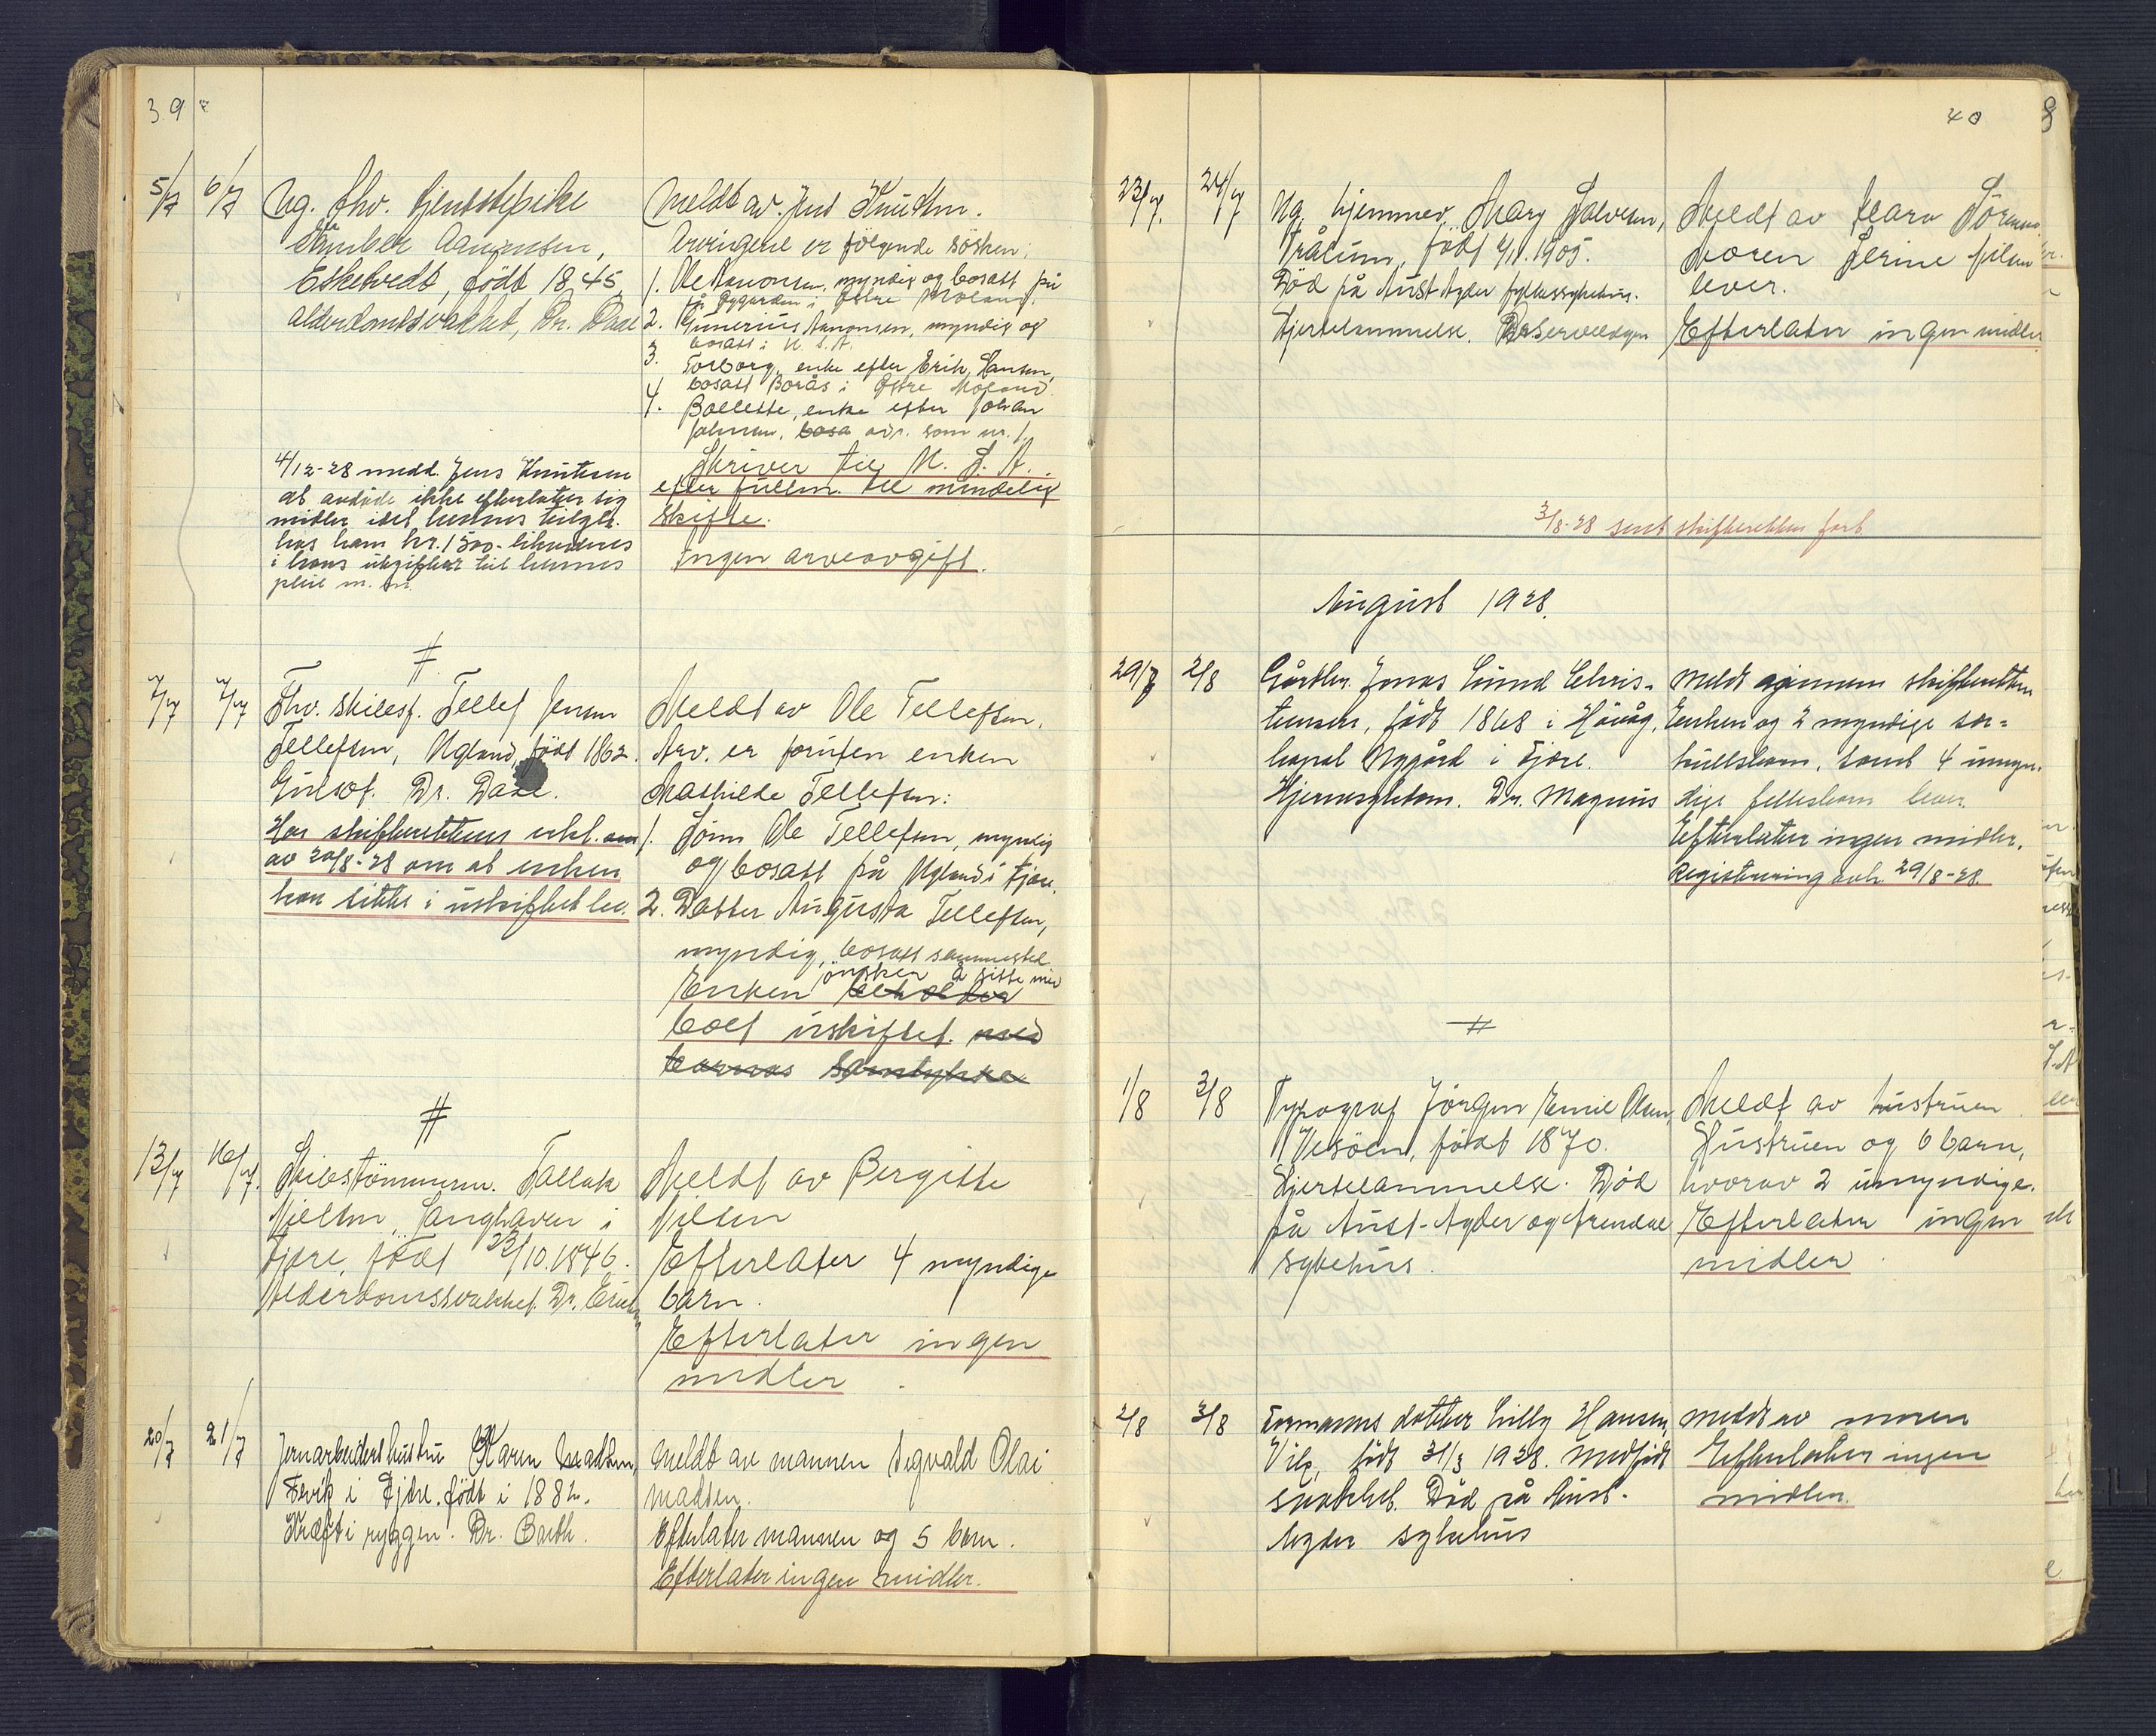 39
5/7 6/7 Ug. fhv. tjenestepike
Aanonsen,
Eskekvedt, født 1845,
alderdomssvakhet, Dr. Daae
Meldt av Jens Knudsen.
Arvingene er følgende søsken:
1. Ole Aanonsen, myndig og bosatt på
i Østre Moland.
2. Gunerius Aanonsen, myndig og
bosatt i U. S. A.
3. Torborg, enke efter Erik Hansen,
bosatt Borås i Østre Moland
4. Bollette, enke efter Johan
Johnsen, bosa adr. som nr. 1.
Skriver til U. S. A.
efter fullm. til mindelig
skifte.
Ingen arveavgift.
4/12-28 medd. Jens Knutsen
at avdøde ikke efterlater sig
midler idet hennes tilgh.
hos ham kr. 1500- liknedes
i hans utgifter til hennes
pleie m. m.
#
7/7 7/7 Fhv. skibsf. Tellef Jensen
Tellefsen, Ugland, født 1862.
Gulsot. Dr. Daae.
Har skifterettens erkl. om
av 20/8-28 om at enken
kan sitte i uskiftet bo.
Meldt av Ole Tellefsen.
Arv. er foruten enken
Mathilde Tellefsen:
1. Sønn Ole Tellefsen, myndig
og bosatt på Ugland i Fjære.
2. Datter Augusta Tellefsen,
myndig, bosatt sammested
ønsker å sitte med
Enken beholder
boet uskiftet. med
barnas samtykke
#
13/7 16/7. Skibstømmerm. Tallak
Nielsen, Langhaven i
Fjære, født 23/10.1846.
Alderdomssvakhet. Dr.
Meldt av Bergitte
Nilsen
Efterlater 4 myndige
barn.
Efterlater ingen
midler.
20/7 21/7 Jernarbeiders hustru Karen Madsen,
Fevik i Fjære. født i 1882.
Kreft i ryggen. Dr. Barth.
Meldt av mannen Sigvald Olai
Madsen.
Efterlater mannen og 5 barn.
Efterlater ingen midler.
40
23/7. 24/7 Ug. hjemmev. Mary Halvorsen,
Trålum, født 4/11.1905.
Død på Aust Agder fylkessykehus.
Hjertelammelse.
Meldt av Klara Sørensen
Moren Serine
lever.
Efterlater ingen midler
3/8-28 sendt skifteretten fort.
August 1928.
29/7 2/8 Gårdbr. Jonas Lund Chris-
tensen, født 1868 i Høvåg,
bopæl Nygård i Fjære.
Hjernesykdom. Dr. Magnus
Meldt gjennem skifteretten
Enken og 2 myndige sær-
kullsbarn, samt 4 umyn-
dige fellesbarn lever.
Efterlater ingen midler.
Registrering avh. 29/8-28.
#
1/8 2/8 Typograf Jørgen Emil Olsen,
Vesøen, født 1870.
Hjertelammelse. Død
på Aust-Agder og Arendal
sykehus.
Meldt av hustruen
Hustruen og 6 barn,
hvorav 2 umyndige.
Efterlater ingen
midler.
2/8 3/8 Formanns datter Lilly Hansen,
Vik, født 31/3 1928. Medfødt
svakhet. Død på Aust-
Agder sykehus
Meldt av moren
Efterlater ingen
midler.